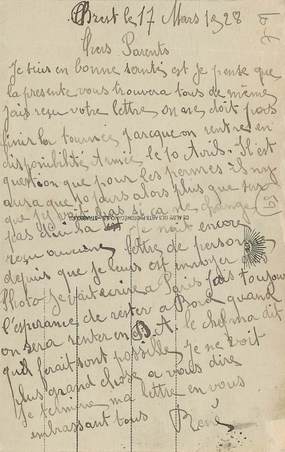 Brest le 17 Mars 1928
Chers Parents
Je suis en bonne santé est je pense que
la présente vous trouvera tous de même
jais reçu votre lettre on ne doit pas
finir la tournée jusque on rentre en
disponibilité Armée le 10 Avril. Il est
question que pour les permes il ny
aura que 15 jours alors plus que sur
que j'y pas si ça ne change
pas d'ici la Je nait encore
reçu aucune lettre de personne
depuis que je leurs est envoyer
Photo Je vait écrire a Paris jais toujour
l'espérance de rester a Bord quand
on sera rentrer en D.A. le chef ma dit
quil ferait sont possible je ne voit
plus grand chose a vous dire
Je termine ma lettre en vous
embrassant tous René